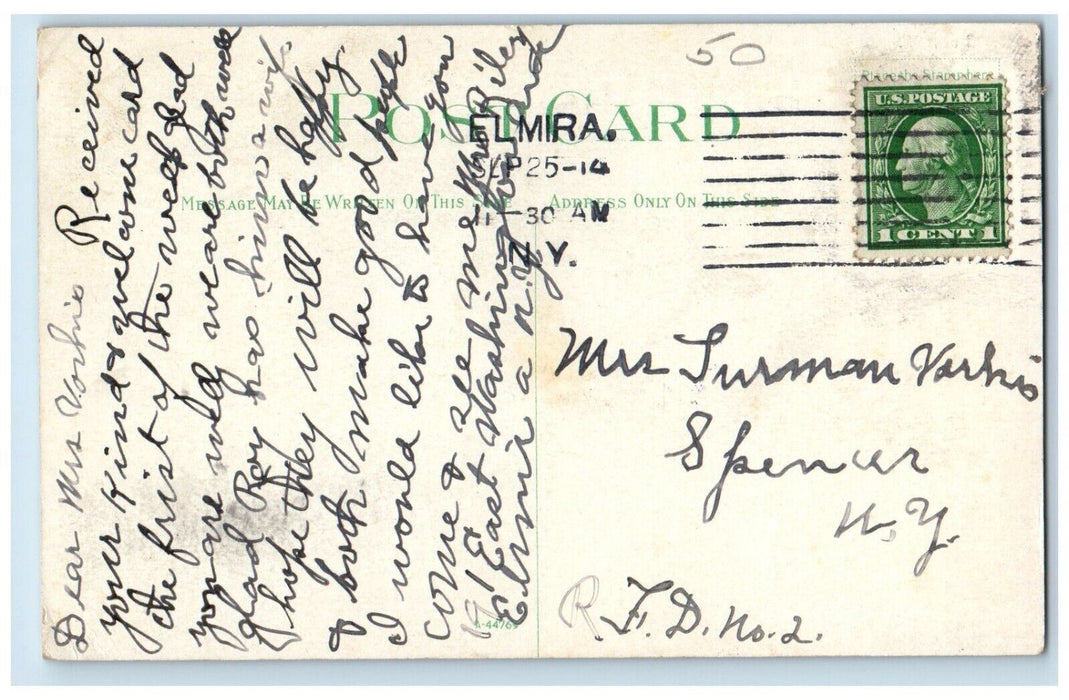 50
POST CARD
MESSAGE MAY BE WRITTEN ON THIS SIDE
ADDRESS ONLY ON THIS SIDE
Place the Stamp here
U.S. POSTAGE
1 CENT 1
ELMIRA.
SEP 25-14
11-30 AM
N.Y.
Dear Mrs Vorhis Received
your kind & welcome card
the first of the week glad
you are well we are both well
glad Roy has him a wife
I hope they will be happy
& both make good people
I would like to have you
come & see me Mrs Riley
East Washington
Elmira N.Y.
Mrs Furman Vorhis
Spencer
N.Y.
R. F. D. No. 2.
A-44765